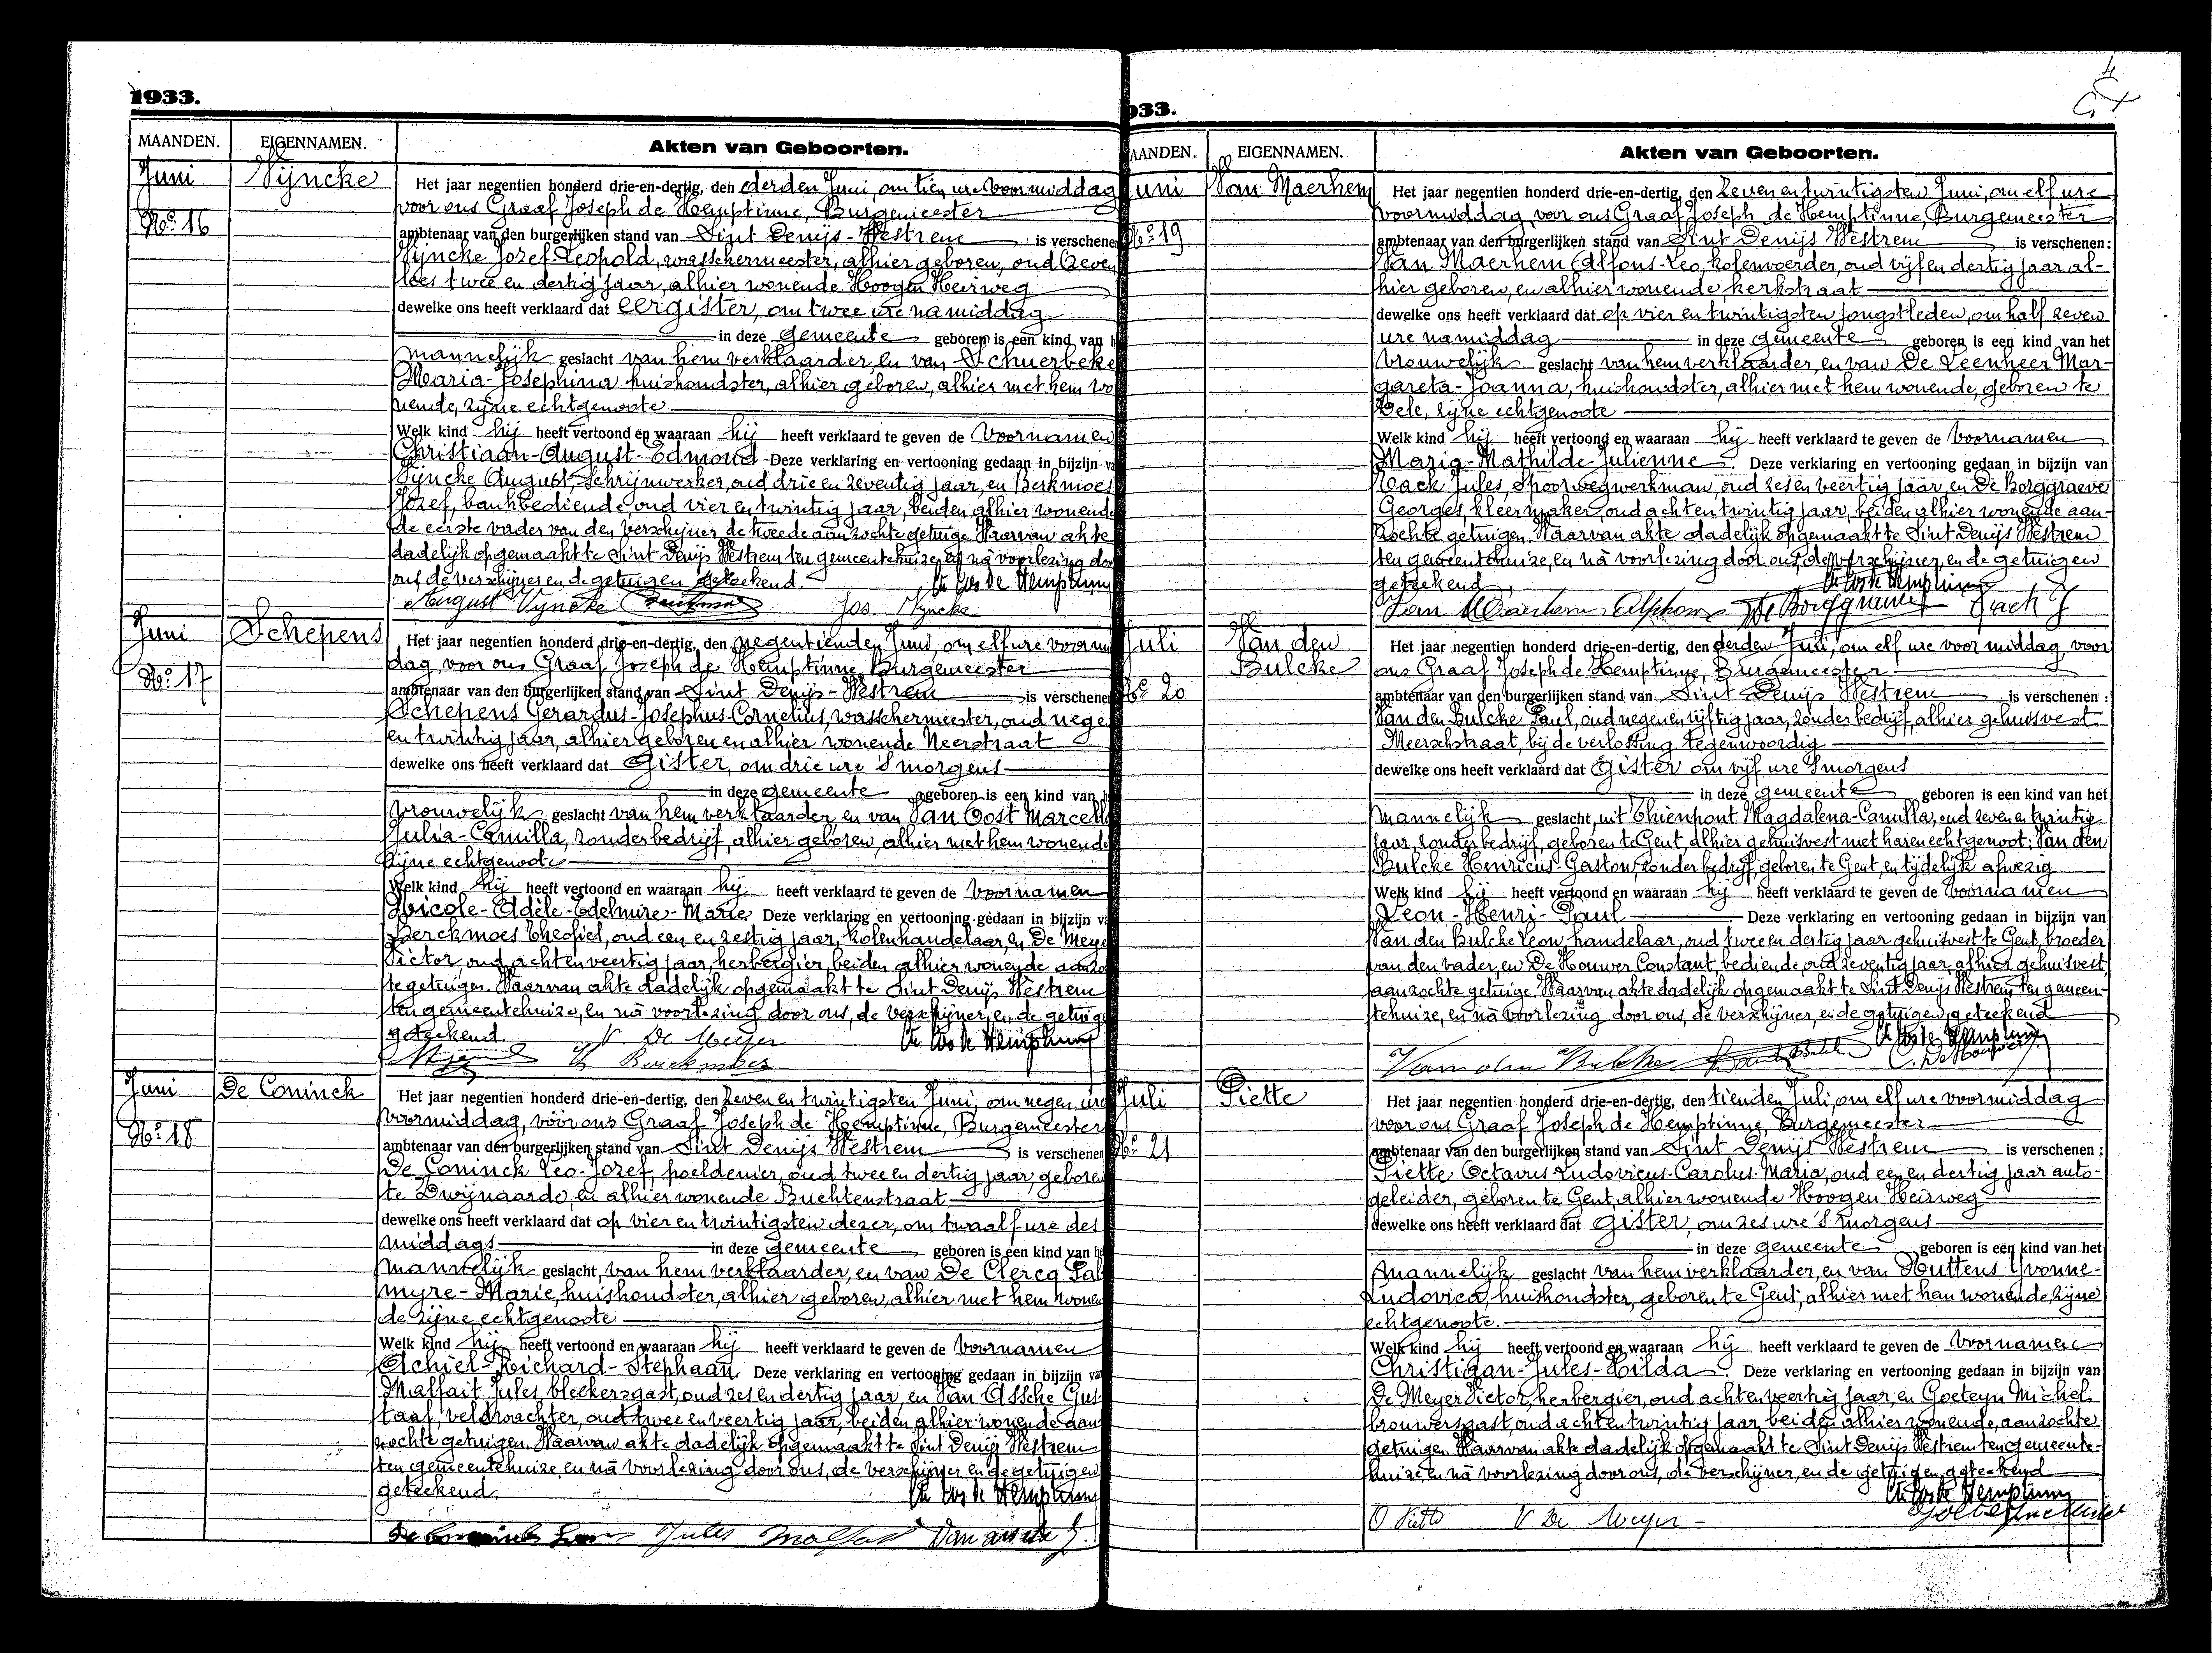 1933.
MAANDEN. EIGENNAMEN. Akten van Geboorten.
Juni Vyncke Het jaar negentien honderd drie-en-dertig, den derden Juni, om tien ure voormiddag
voor ons Graaf Joseph de Hemptinne, Burgemeester
No. 16 ambtenaar van den burgerlijken stand van Sint Denijs-Westrem is verschenen
Vyncke Jozef-Leopold, wasschermeester, alhier geboren, oud
twee en dertig jaar, alhier wonende Hoogen Heirweg
dewelke ons heeft verklaard dat eergister, om twee ure namiddag
in deze gemeente geboren is een kind van
mannelijk geslacht van hem verklaarder, en van Schuerbeke
Maria-Josephina huishoudster, alhier geboren, alhier met hem wo
nende, zijne echtgenoote
Welk kind hij heeft vertoond en waaraan hij heeft verklaard te geven de voornamen
Christiaan-August-Edmond Deze verklaring en vertooning gedaan in bijzijn
Vyncke August Schrijnwerker, oud drie en zeventig jaar, en Berkmoes
Jozef, bankbediende, oud vier en twintig jaar, beiden alhier wonende
de eerste vader van den verschijner de tweede aanzochte getuige Waarvan akte
dadelijk opgemaakt te Sint Denijs Westrem ten gemeentehuize, en nà voorlezing do
ons de verschijner en de getuigen geteekend.
August Vyncke Jos. Vyncke
Juni Schepens Het jaar negentien honderd drie-en-dertig, den negentienden Juni, om elf ure voormid
dag, voor ons Graaf Joseph de Hemptinne Burgemeester
No. 17 ambtenaar van den burgerlijken stand van Sint Denijs-Westrem is verschenen
Schepens Gerardus-Josephus-Cornelius, wasschermeester, oud nege
en twintig jaar, alhier geboren en alhier wonende Neerstraat
dewelke ons heeft verklaard dat Gister, om drie ure 's morgens
in deze gemeente geboren is een kind van
vrouwelijk geslacht van hem verklaarder en van Van Oost Marcella
Julia-Camilla, zonder bedrijf, alhier geboren, alhier met hem wonende
zijne echtgenoote
Welk kind hij heeft vertoond en waaraan hij heeft verklaard te geven de voornamen
Nicole-Adèle-Edelmire-Marie Deze verklaring en vertooning gedaan in bijzijn
Berckmoes Theofiel, oud een en zestig jaar, kolenhandelaar, en De Meye
Victor oud achtenveertig jaar, herbergier, beiden alhier wonende aanzo
te getuigen. Waarvan akte dadelijk opgemaakt te Sint Denijs Westrem
ten gemeentehuize, en nà voorlezing door ons, de verschijner, en de getuige
geteekend. V De Meyer
Th Berckmoes
Juni De Coninck Het jaar negentien honderd drie-en-dertig, den Zeven en twintigsten Juni, om negen ure
voormiddag, vóór ons Graaf Joseph de Hemptinne, Burgemeester
No. 18 ambtenaar van den burgerlijken stand van Sint Denijs Westrem is verschenen
De Coninck Leo-Jozef, poeldenier, oud twee en dertig jaar, geboren
te Zwijnaarde, en alhier wonende Buchtenstraat
dewelke ons heeft verklaard dat op vier en twintigsten dezer, om twaalf ure des
middags in deze gemeente geboren is een kind van he
mannelijk geslacht, van hem verklaarder, en van De Clercq Pal
myre-Marie, huishoudster, alhier geboren, alhier met hem wonen
de zijne echtgenoote
Welk kind hij heeft vertoond en waaraan hij heeft verklaard te geven de voornamen
Achiel-Richard-Stephaan Deze verklaring en vertooning gedaan in bijzijn va
Malfait Jules, bleekersgast, oud zes en dertig jaar, en Van Assche Gus
taaf, veldwachter, oud twee en veertig jaar, beiden alhier wonende aan
zochte getuigen. Waarvan akte dadelijk opgemaakt te Sint Denijs Westrem
ten gemeentehuize, en nà voorlezing door ons, de verschijner en de getuigen
geteekend.
Jules Malfait Van assche G.
933.
AANDEN. EIGENNAMEN. Akten van Geboorten.
Juni Van Maerhem Het jaar negentien honderd drie-en-dertig, den Zeven en twintigsten Juni, om elf ure
voormiddag, voor ons Graaf Joseph de Hemptinne, Burgemeester
No. 19 ambtenaar van den burgerlijken stand van Sint Denijs Westrem is verschenen:
Van Maerhem Alfons-Leo, kolenvoerder, oud vijf en dertig jaar al-
hier geboren, en alhier wonende, kerkstraat
dewelke ons heeft verklaard dat op vier en twintigsten jongstleden, om half zeven
ure namiddag in deze gemeente geboren is een kind van het
vrouwelijk geslacht van hem verklaarder, en van De Leenheer Mar-
gareta-Joanna, huishoudster, alhier met hem wonende, geboren te
Zele, zijne echtgenoote
Welk kind hij heeft vertoond en waaraan hij heeft verklaard te geven de voornamen
Maria-Mathilde-Julienne. Deze verklaring en vertooning gedaan in bijzijn van
Jules, Spoorwegwerkman, oud zes en veertig jaar, en De Borggraeve
Georges, kleermaker, oud achtentwintig jaar, beiden alhier wonende aan-
zochte getuigen. Waarvan akte dadelijk opgemaakt te Sint Denijs Westrem
ten gemeentehuize, en nà voorlezing door ons, de verschijner, en de getuigen
geteekend.
Van Maerhem Alphons De Borggraeve
Juli Van den Het jaar negentien honderd drie-en-dertig, den derden Juli, om elf ure voormiddag voor
Bulcke ons Graaf Joseph de Hemptinne, Burgemeester
No. 20 ambtenaar van den burgerlijken stand van Sint Denijs Westrem is verschenen:
Van den Bulcke Paul, oud negen en vijftig jaar, zonder bedrijf, alhier gehuisvest
Meerschstraat, bij de verlossing tegenwoordig
dewelke ons heeft verklaard dat Gister om vijf ure 's morgens
in deze gemeente geboren is een kind van het
mannelijk geslacht, uit Thienpont Magdalena-Camilla, oud zeven en twintig
jaar, zonder bedrijf, geboren te Gent, alhier gehuisvest met haren echtgenoot: Van den
Bulcke Henricus-Gaston, zonder bedrijf, geboren te Gent en tijdelijk afwezig
Welk kind hij heeft vertoond en waaraan hij heeft verklaard te geven de voornamen
Leon-Henri-Paul Deze verklaring en vertooning gedaan in bijzijn van
Van den Bulcke Leon, handelaar, oud twee en dertig jaar gehuisvest te Gent, broeder
van den vader, en De Houwer Constant, bediende, oud zeventig jaar, alhier gehuisvest,
aanzochte getuige. Waarvan akte dadelijk opgemaakt te Sint Denijs Westrem ten gemeen-
tehuize, en nà voorlezing door ons, de verschijner, en de getuigen, geteekend
Van den Bulcke C. De Houwer
Juli Piette Het jaar negentien honderd drie-en-dertig, den tienden Juli, om elf ure voormiddag
voor ons Graaf Joseph de Hemptinne, Burgemeester
No. 21 ambtenaar van den burgerlijken stand van Sint Denijs Westrem is verschenen:
Piette Octavus-Ludovicus-Carolus-Maria, oud een en dertig jaar auto-
geleider, geboren te Gent, alhier wonende Hoogen Heirweg
dewelke ons heeft verklaard dat gister, om zes ure 's morgens
in deze gemeente geboren is een kind van het
mannelijk geslacht van hem verklaarder, en van Huttens Yvonne-
Ludovica, huishoudster, geboren te Gent, alhier met hem wonende, zijne
echtgenoote.
Welk kind hij heeft vertoond en waaraan hij heeft verklaard te geven de voornamen
Christiaan-Jules-Hilda. Deze verklaring en vertooning gedaan in bijzijn van
De Meyer Victor, herbergier, oud achtenveertig jaar, en Goeteyn Michel
brouwersgast, oud achtentwintig jaar, beiden alhier wonende, aanzochte
getuigen. Waarvan akte dadelijk opgemaakt te Sint Denijs Westrem ten gemeente-
huize, en nà voorlezing door ons, de verschijner, en de getuigen, geteekend
O Piette V De Meyer